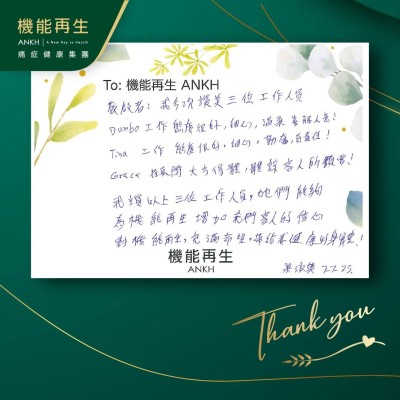 機能再生
ANKH | A New Key to Health
癌症健康集團
To: 機能再生 ANKH
敬啟者：我今次讚美三位工作人員
Dumbo 工作態度很好，細心，溫柔，善解人意！
Tina 工作態度很好，細心，勤奮，有責任！
Grace 姑娘 大方得體，體諒客人的難處！
我讚以上三位工作人員，她們能夠
為機能再生增加我們客人的信心
對機能再生，充滿希望，帶給我健康的身體！
機能再生
ANKH
2.2.25
Thank you